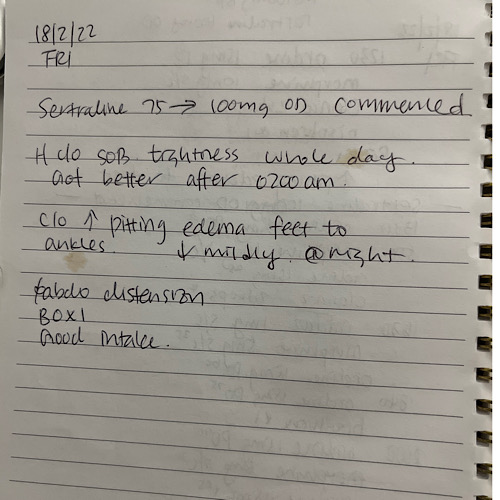 18/2/22
FRI
Sertraline 75 → 100mg OD commenced
H c/o SOB tightness whole day.
Got better after 0200 am.
c/o ↑ pitting edema feet to
ankles. ↓ mildly. @night.
abdo distension
BOX1
Good intake.